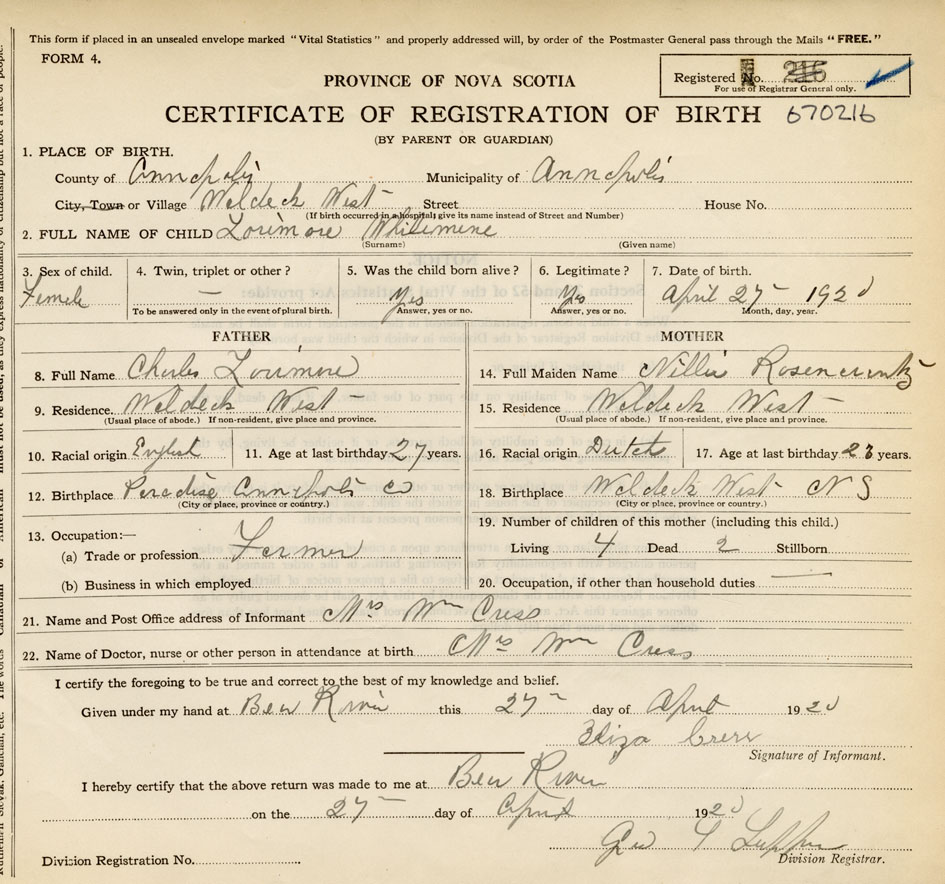 This form if placed in an unsealed envelope marked "Vital Statistics" and properly addressed will, by order of the Postmaster General pass through the Mails "FREE."
FORM 4.
Registered No. 216
For use of Registrar General only.
PROVINCE OF NOVA SCOTIA
CERTIFICATE OF REGISTRATION OF BIRTH 670216
(BY PARENT OR GUARDIAN)
1. PLACE OF BIRTH.
County of Annapolis Municipality of Annapolis
City, Town or Village Weldeck West Street House No.
(If birth occurred in a hospital, give its name instead of Street and Number)
2. FULL NAME OF CHILD Lorimore
(Surname) (Given name)
3. Sex of child. 4. Twin, triplet or other? 5. Was the child born alive? 6. Legitimate? 7. Date of birth.
Female — Yes Yes April 27 1920
To be answered only in the event of plural birth. Answer, yes or no. Answer, yes or no. Month, day, year.
FATHER MOTHER
8. Full Name Charles Lorimore 14. Full Maiden Name Nillie
9. Residence. Weldeck West 15. Residence Weldeck West
(Usual place of abode.) If non-resident, give place and province. (Usual place of abode.) If non-resident, give place and province.
10. Racial origin English 11. Age at last birthday 27 years. 16. Racial origin Dutch 17. Age at last birthday years.
12. Birthplace Paradise Annapolis Co 18. Birthplace Weldeck West N S
(City or place, province or country.) (City or place, province or country.)
13. Occupation:— 19. Number of children of this mother (including this child.)
(a) Trade or profession. Farmer Living 4 Dead 2 Stillborn
(b) Business in which employed 20. Occupation, if other than household duties —
21. Name and Post Office address of Informant Mrs Wm Cress
22. Name of Doctor, nurse or other person in attendance at birth Mrs Wm Cress
I certify the foregoing to be true and correct to the best of my knowledge and belief.
Given under my hand at Bear River this 27 day of April 1920
Eliza
Signature of Informant.
I hereby certify that the above return was made to me at Bear River
on the 27 day of April 1920
Geo
Division Registration No. Division Registrar.